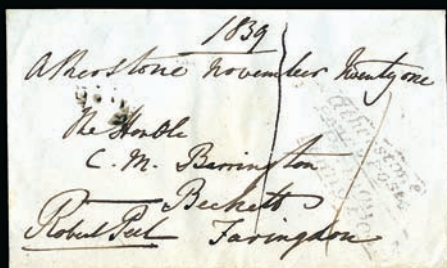 1839
Atherstone November twenty one
The Honble
C. M. Barrington
Beckett
Robert Peel Faringdon
Atherstone
Penny Post